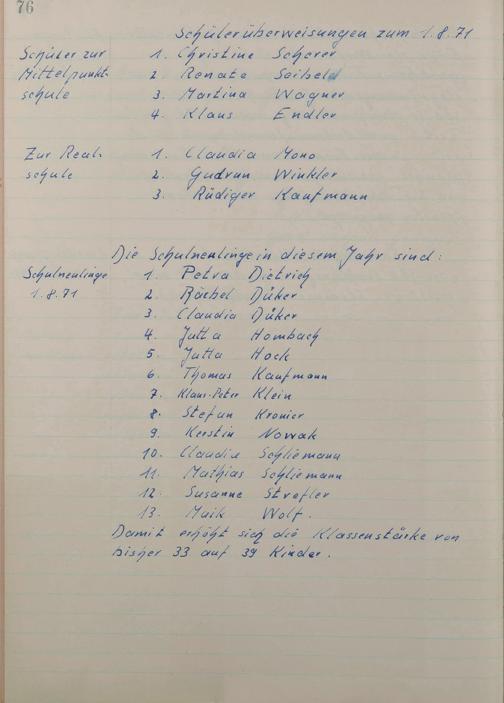 76
Schülerüberweisungen zum 1.8.71
Schüler zur
Mittelpunkt-
schule
1. Christine Scherer
2. Renate Seibeld
3. Martina Wagner
4. Klaus Endler
Zur Real-
schule
1. Claudia Mono
2. Gudrun Winkler
3. Rüdiger Kaufmann
Die Schulneulinge in diesem Jahr sind:
Schulneulinge
1.8.71
1. Petra Dietrich
2. Bärbel Düker
3. Claudia Düker
4. Jutta Hombach
5. Jutta Hock
6. Thomas Kaufmann
7. Klaus-Peter Klein
8. Stefan Kronier
9. Kerstin Nowak
10. Claudia Schliemann
11. Mathias Schliemann
12. Susanne
13. Maik Wolf.
Damit erhöht sich die Klassenstärke von
bisher 33 auf 39 Kinder.